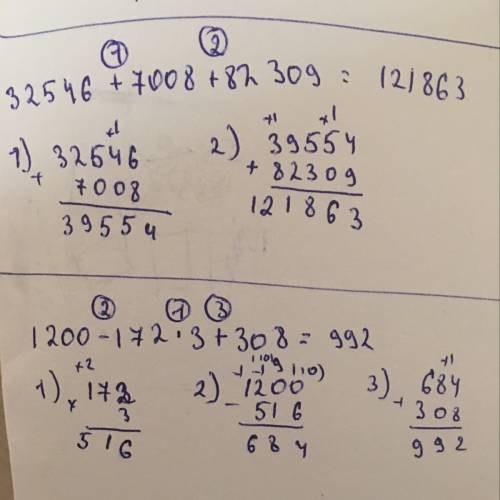 ① ②
32546 + 7008 + 82309 = 121863
+1 +1 +1
1) 32546 2) 39554
+ 7008 + 82309
39554 121863
② ① ③
1200 - 172 · 3 + 308 = 992
+2 +1
1) 172 2) 1200 3) 684
× 3 - 516 + 308
516 684 992